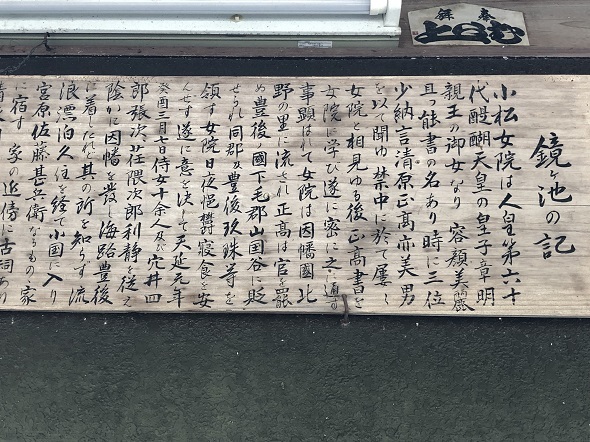 鏡ヶ池の記
小松女院は人皇第六十
代醍醐天皇の皇子章明
親王の御女なり 容顔美麗
且つ能書の名あり 時に三位
少納言清原正高亦美男
を以て聞ゆ 禁中に於て屡々
女院と相見ゆる後正高書を
女院に学び遂に密に之と通ず
事顕はれて女院は因幡國北
野の里に流され正高は官を罷
め豊後ノ國下毛郡山国谷に貶
せられ同郡及豊後玖珠等を
領す 女院日夜悒欝寝食を安
んぜず遂に意を決して天延元年
癸酉三月七日侍女十余人及び穴井四
郎張次荘隈次郎利静を従え
陰かに因幡を發し海路豊後
に着したれど其の所を知らず流
浪漂泊久住を経て小国に入り
宮原佐藤甚兵衛なるものゝ家
宿す 家の近傍に古祠あり